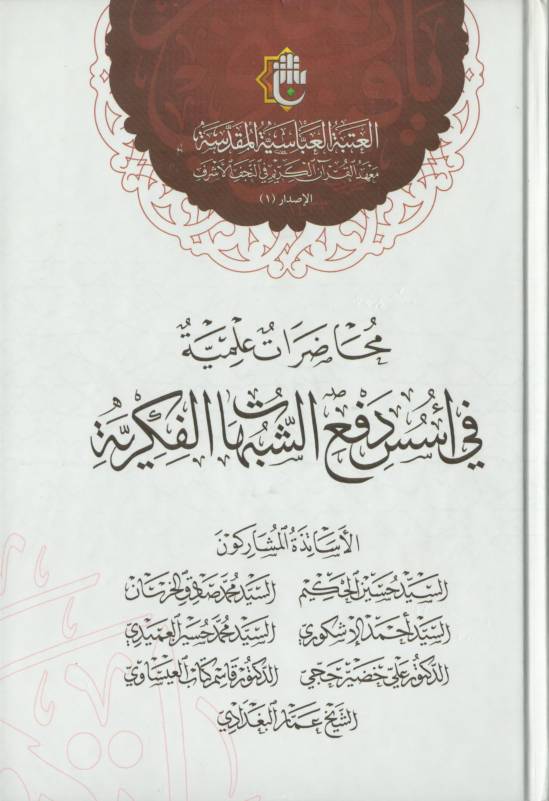 العتبة العباسية المقدسة
معهد القرآن الكريم في النجف الأشرف
الإصدار (١)
محاضرات علمية
في أسس دفع الشبهات الفكرية
الأساتذة المشاركون
السيد حسين الحكيم السيد محمد صادق الخرسان
السيد أحمد الإشكوري السيد محمد حسين العميدي
الدكتور علي خضير حجي الدكتور قاسم كتاب العيساوي
الشيخ عمار البغدادي